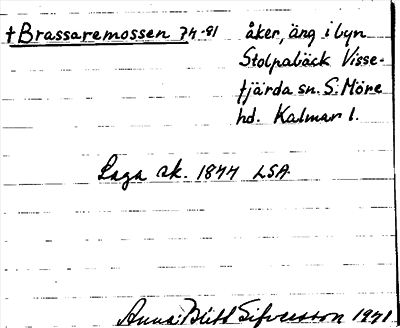 †Brassaremossen 74-81 åker, äng i byn
Stolpabäck Visse-
fjärda sn. S. Möre
hd. Kalmar l.
Laga sk. 1844 LSA
Anna-Britt Sifversson 1971